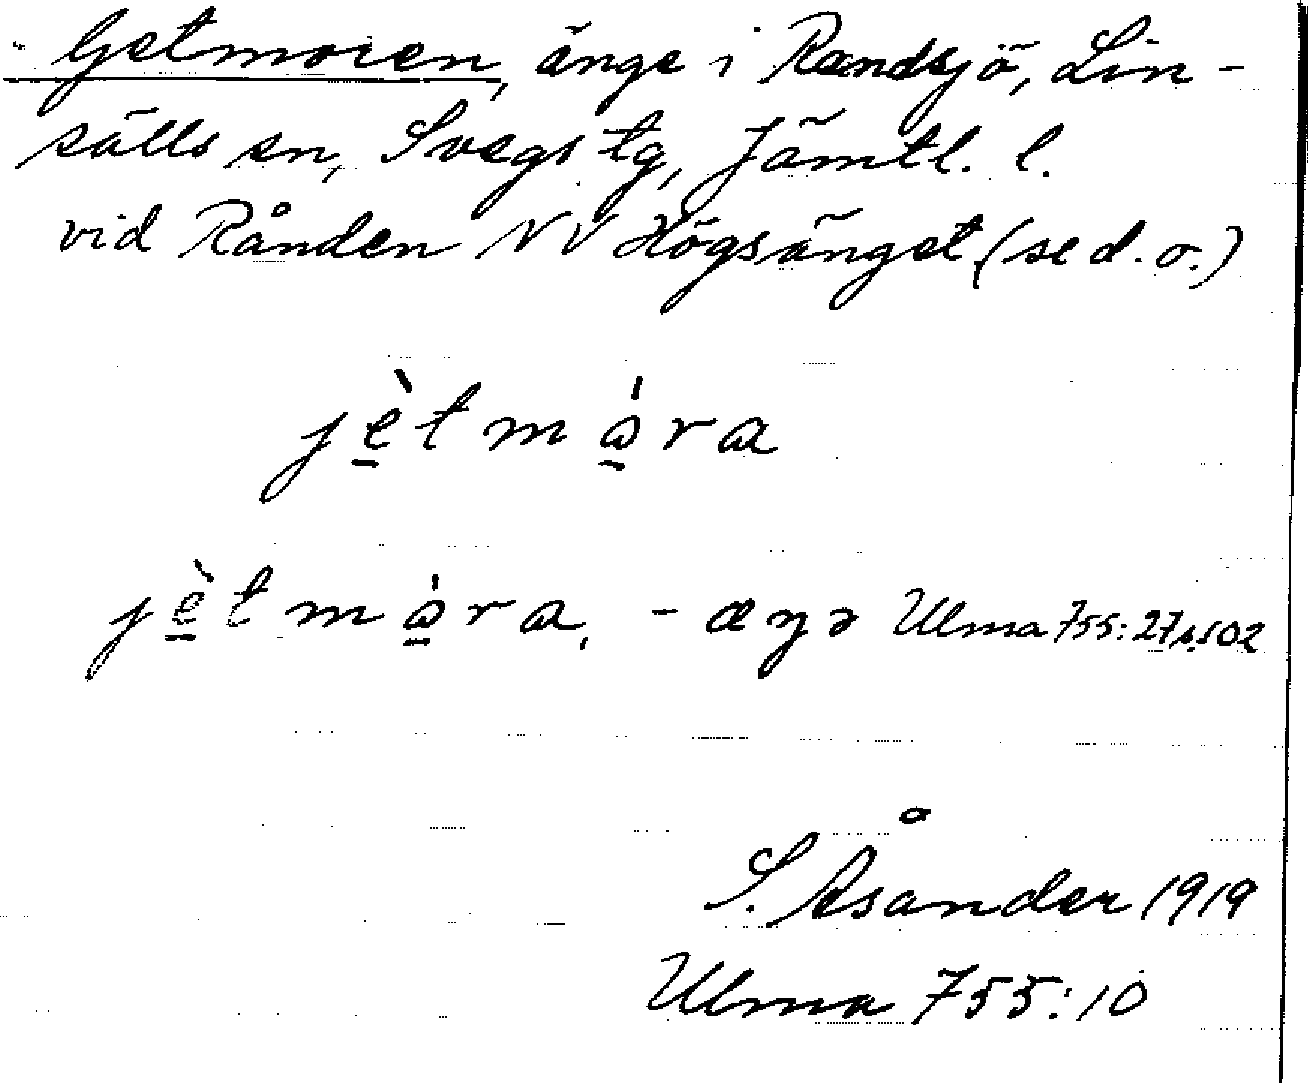 Getmoren, änge i Randsjö, Lin-
sälls sn, Svegs tg, Jämtl. l.
vid Rånden NV Högsänget (se d. o.)
jè̱tmò̱ra
jè̱tmò̱ra, -æŋə Ulma 755:27 s. 502
S. Åsander 1919
Ulma 755:10